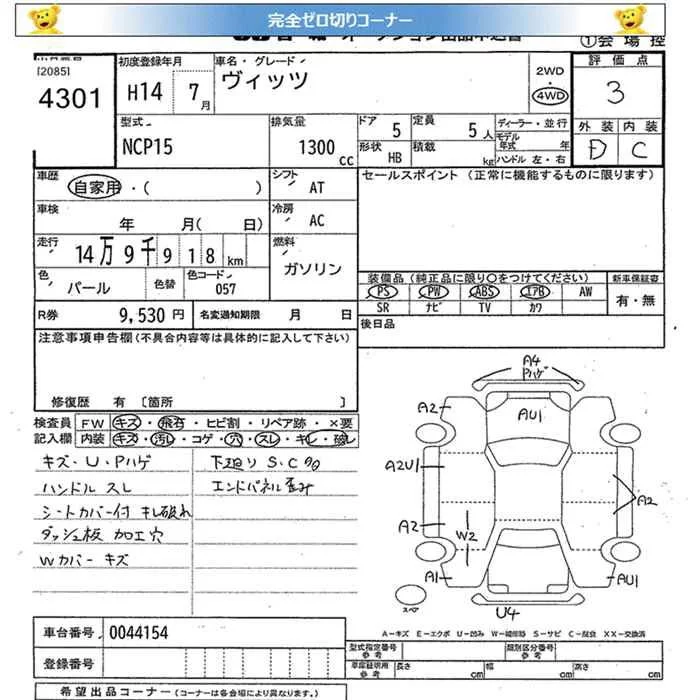 完全ゼロ切りコーナー
①会場控
[2085]
4301
初度登録年月
H14 7月
車名・グレード
ヴィッツ
2WD
・
4WD
評価点
3
外装 内装
D C
型式
NCP15
排気量
1300cc
ドア 5
定員 5人
形状 HB
積載 kg
ディーラー・並行
モデル年式 年
ハンドル 左・右
車歴
自家用・( )
シフト
AT
セールスポイント (正常に機能するものに限ります)
車検
年 月( 日)
冷房
AC
走行
14万9千918km
燃料
ガソリン
色
パール
色替
色コード
057
装備品(純正品に限り○をつけてください)
新車保証書
PS PW ABS エアB AW
有・無
SR ナビ TV カワ
R券 9,530円
名変通知期限 月 日
後日品
注意事項申告欄(不具合内容等は具体的に記入して下さい)
修復歴 有 [箇所 ]
検査員記入欄
FW キズ・飛石・ヒビ割・リペア跡・×要
内装 キズ・汚し・コゲ・穴・スレ・キレ・破し
キズ・U・Pハゲ
下廻りS・C有
ハンドルスレ
エンドパネル歪み
シートカバー付 キレ破れ
ダッシュ板 加工穴
Wカバー キズ
A4
Pハゲ
A2
AU1
A2U1
A2
A2
W2
A1
AU1
スペア
U4
A−キズ E−エクボ U−凹み W−補修跡 S−サビ C−腐食 XX−交換済
車台番号 0044154
登録番号
型式指定番号
参考
類別区分番号
参考
車庫証明用
参考
長さ cm
幅 cm
高さ cm
希望出品コーナー(コーナーは各会場により異なります。)